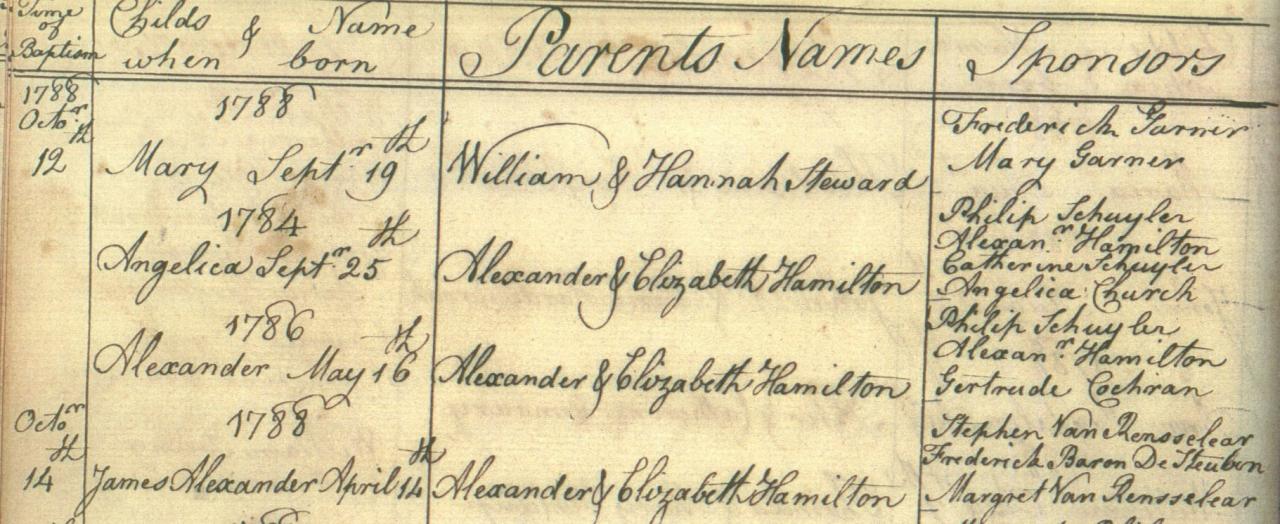 Time of Baptism
Childs & Name when born
Parents Names
Sponsors
1788
Octor. th
12
1788
Mary Septr. 19th
William & Hannah Steward
Frederick Garner
Mary Garner
1784
Angelica Septr. 25th
Alexander & Elizabeth Hamilton
Philip Schuyler
Alexanr. Hamilton
Catherine Schuyler
Angelica Church
1786
Alexander May 16th
Alexander & Elizabeth Hamilton
Philip Schuyler
Alexanr. Hamilton
Gertrude Cochran
Octor
th
14
1788
James Alexander April 14th
Alexander & Elizabeth Hamilton
Stephen Van Rensselear
Frederick Baron De Steuben
Margret Van Rensselear